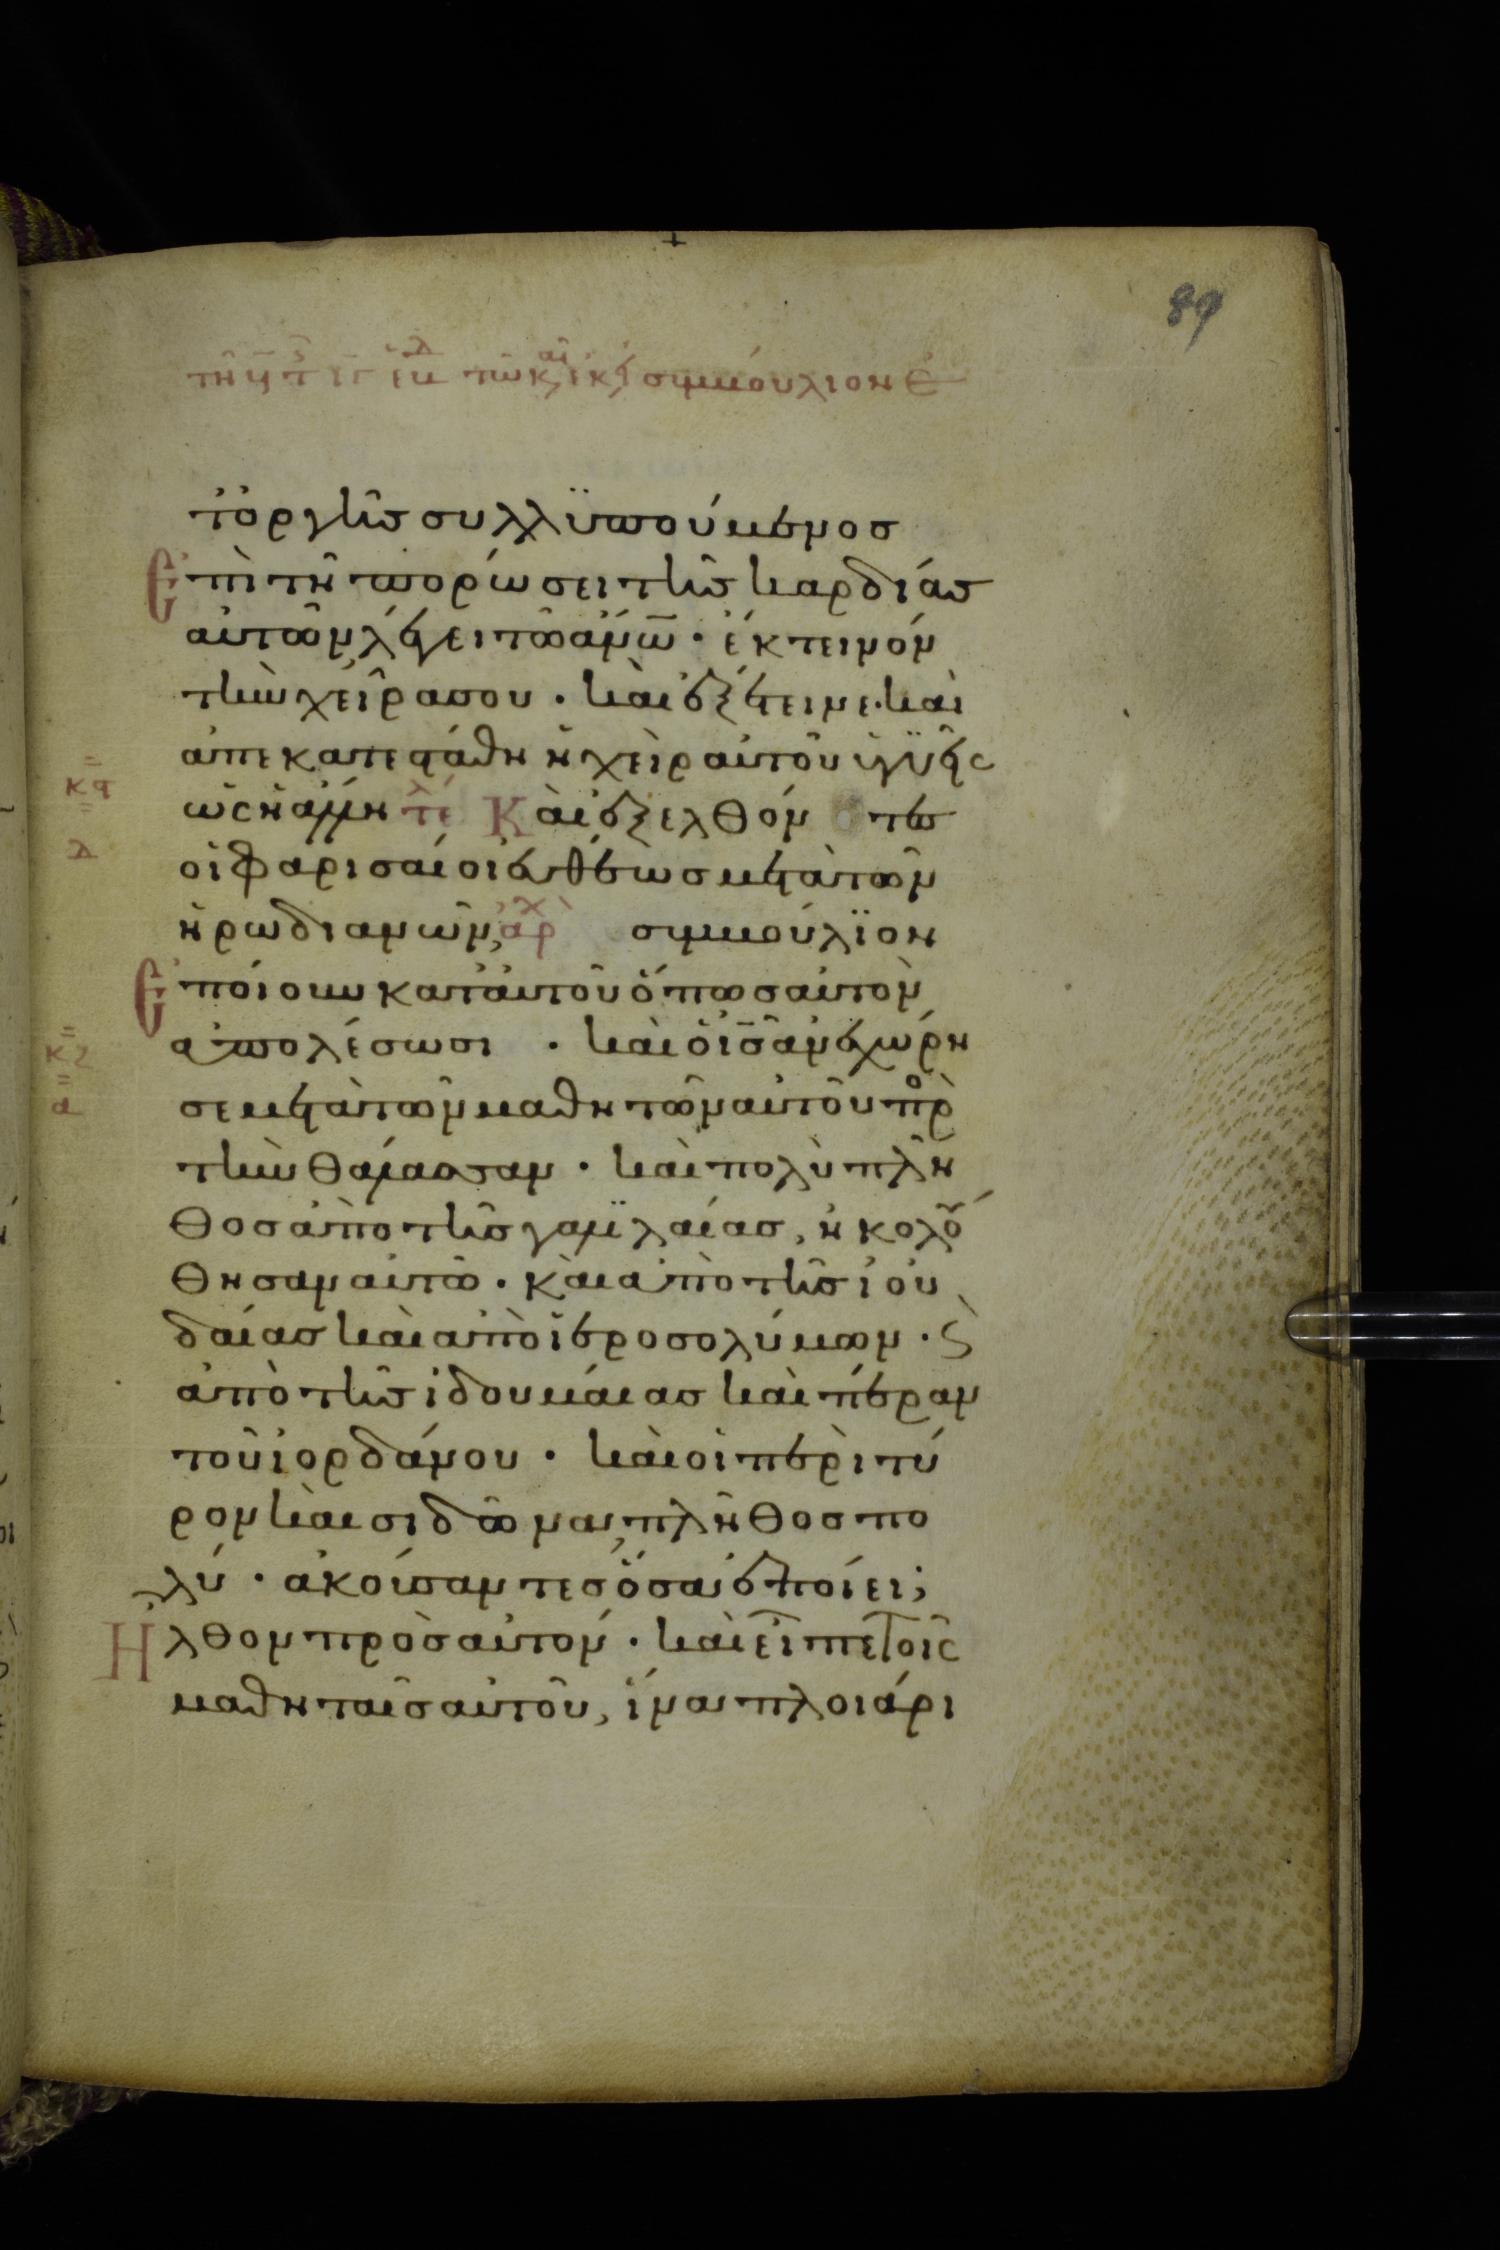 89
συμβούλιον ἐ
τ' ὀργῆς συλλϋπούμενος
Ἐπὶ τῆ πορώσει τῆς καρδίας
αὐτῶν λέγει τῶ ἀνω̅· ἔκτεινόν
τὴν χεῖρα σου· καὶ ἐξέτεινε· καὶ
ἀπεκατεστάθη ἡ χεὶρ αὐτοῦ ὑγϊὴς
ὡς ἡ ἄλλη τε Καὶ ἐξελθόντες
οἱ φαρισαίοι ἐυθέως μετὰ τῶν
ἡρωδιανῶν, ἀρχ συμβούλϊον
Ἐποίουν κατ' ἀυτοῦ ὅπως αὐτὸν
ἀπολέσωσι · καὶ ὁ ις̅ ἀνεχώρη
σε μετὰ τῶν μαθητῶν αὐτοῦ πρὸ
τὴν θάλασσαν · καὶ πολὺ πλῆ
θος ἀπο τῆς γαλϊλαίας, ἠκολού
θησαν αὐτῶ · καὶ ἀπὸ τῆς ἰου
δαίας καὶ ἀπὸ ἱεροσολύμων · ϗ
ἀπὸ τῆς ἰδουμαίας καὶ πέραν
τοῦ ἰορδάνου · καὶ οἱ περὶ τύ
ρον καὶ σιδῶνα, πλῆθος πο
λύ · ἀκούσαντες ὅσα ἐποίει;
Ἦλθον πρὸς αὐτόν · καὶ εἶπε τοῖς
μαθηταῖς αὐτοῦ, ἵνα πλοιάρι